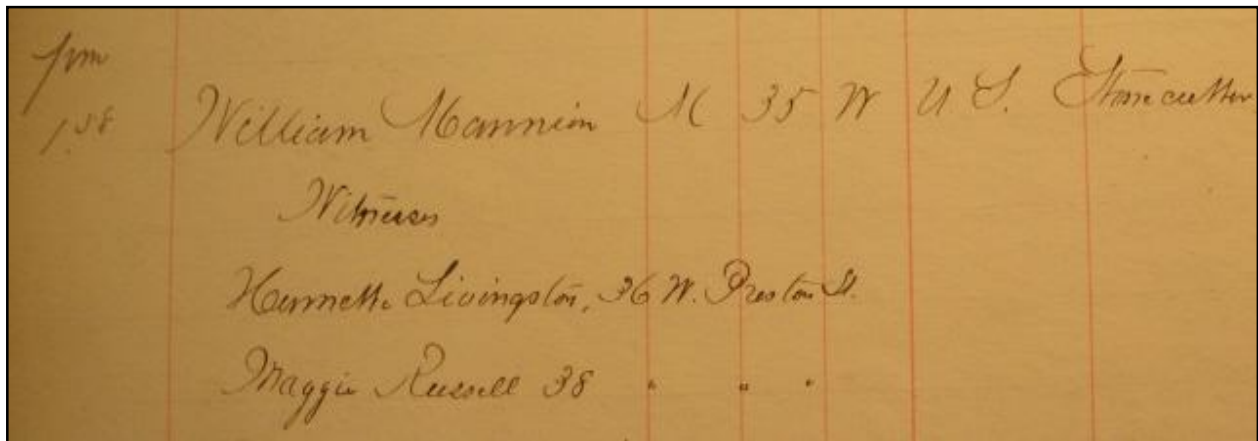 pm
1.58 William Mannion M 35 W U S. Stonecutter
Witnesses
Livingston, 36 W. Preston St.
Maggie Russell 38 " " "